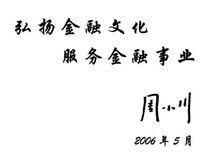 弘扬金融文化
服务金融事业
周小川
2006年5月